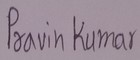 Pravin Kumar